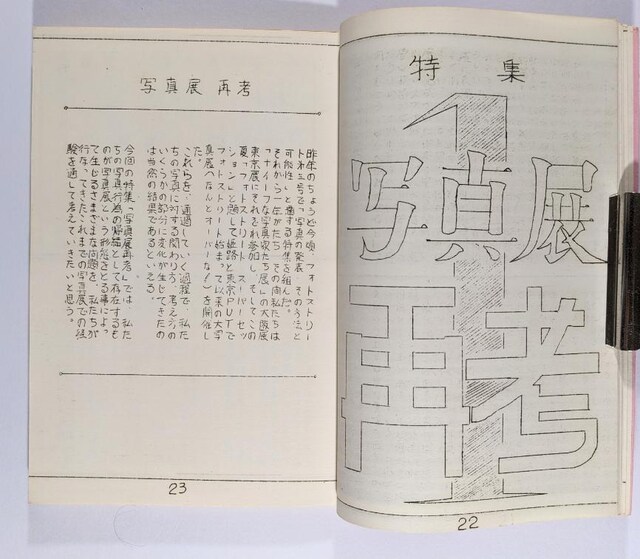 特集
1
写真展
再考
22
写真展 再考
昨年のちょうど今頃、フォトストリー
ト第三号で、「写真の発表、その方法と
可能性」と題する特集を組んだ。
それから一年がたち、その間私たちは
「ナイーブな写真家たち展」の大阪展
東京展にそれぞれ参加し、そしてこの
夏「フォトストリート スーパーセッ
ション」と題して姫路と東京PUTで
フォトストリート始まって以来の大写
真展(なんとオーバーな!)を開催し
た。
これらを、通過していく過程で、私た
ちの写真に対する関わり方、考え方の
いくらかの部分に変化が生じてきたの
は当然の結果であるといえる。
今回の特集「写真展再考」では、私た
ちの写真行為の帰結として存在するも
のが写真展という形態をとる事によっ
て生じるさまざまな問題を、私たちが
行なってきたこれまでの写真展での経
験を通して考えていきたいと思う。
23